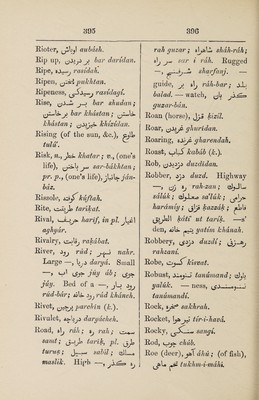 395
396
Rioter, اوباش aubásh.
Rip up, بر دریدن bar darídan.
Ripe, رسیده rasídah.
Ripen, پختن pukhtan.
Ripeness, رسیدگی rasídagí.
Rise, بر شدن bar shudan;
بر خاستن bar khástan; خاستن
khástan; خیزیدن khízídan.
Rising (of the sun, &c.), طلوع
tulú'.
Risk, n., خطر khatar; v., (one's
life), سر باختن sar-bákhtan;
pr. p., (one's life), جانباز ján-
báz.
Rissole, کوفته kúftah.
Rite, طریقت taríkat.
Rival, حریف haríf, in pl. اغیار
aghyár.
Rivalry, رقابت rakábat.
River, رود rúd; نهر nahr.
Large —, دریا daryá. Small
—, جوی آب júy áb; جوی
júy. Bed of a —, رود بار
rúd-bár; رود خانه rúd kháneh.
Rivet, پرچین parchín (k.).
Rivulet, دریاچه daryácheh.
Road, راه ráh; ره rah; سمت
samt; طریق taríḳ, pl. طرق
turuḳ; سبیل sabíl; مسلك
maslik. High —, ره گذر
rah guzar; شاه راه sháh-ráh;
سر راه sar i ráh. Rugged
—, شرفنج sharfanj. —
guide, راه بر ráh-bar; بلد
balad. — watch, گذر بان
guzar-bán.
Roan (horse), قزل ḳizil.
Roar, غریدن ghurídan.
Roaring, غرنده gharendah.
Roast, کباب kabáb (k.).
Rob, دزدیدن duzdídan.
Robber, دزد duzd. Highway
—, ره زن rah-zan; سالوك
sálúk; سعلوك saʿluk; حرامی
harámíy; قزاق ḳazzáḳ; قاطع
الطریق ḳátiʿ ut taríḳ. —s'
den, یتیم خانه yatím khánah.
Robbery, دزدی duzdí; رهزنی
rahzaní.
Robe, کسوت kiswat.
Robust, تنومند tanúmand; یالوك
yalúk. — ness, تنومندی
tanúmandí.
Rock, صخره sakhrah.
Rocket, تیر هوا tír-i-havá.
Rocky, سنگی sangí.
Rod, چوب chúb.
Roe (deer), آهو áhú; (of fish),
تخم ماهی tukhm-i-máhí.